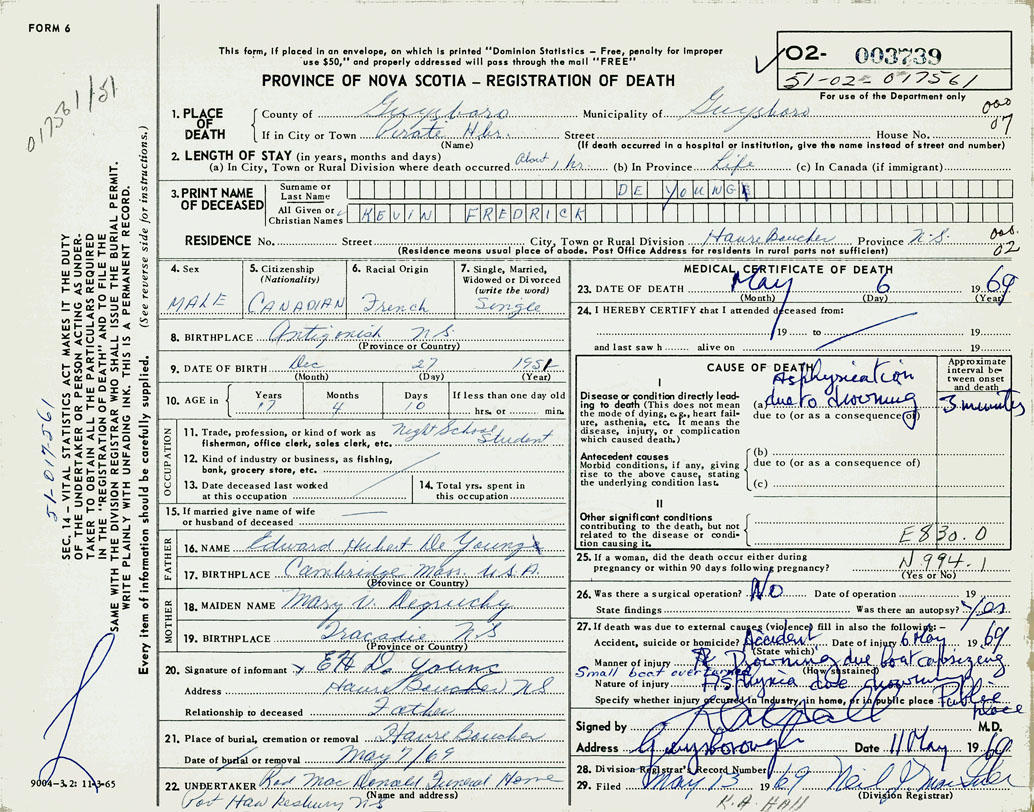 FORM 6
This form, if placed in an envelope, on which is printed "Dominion Statistics – Free, penalty for improper
use $50," and properly addressed will pass through the mail "FREE"
PROVINCE OF NOVA SCOTIA – REGISTRATION OF DEATH
O2- 003739
51-02-017561
For use of the Department only
017561/51
1. PLACE OF DEATH
County of Guysboro Municipality of Guysboro
000
07
If in City or Town Pirate Hbr. Street House No.
(Name) (If death occurred in a hospital or institution, give the name instead of street and number)
2. LENGTH OF STAY (in years, months and days)
(a) In City, Town or Rural Division where death occurred About 1 hr. (b) In Province Life (c) In Canada (if immigrant)
3. PRINT NAME OF DECEASED
Surname or Last Name DE YOUNG
All Given or Christian Names KEVIN FREDRICK
RESIDENCE No. Street City, Town or Rural Division Havre Boucher Province N.S.
(Residence means usual place of abode. Post Office Address for residents in rural parts not sufficient)
000.
02
4. Sex
MALE
5. Citizenship
(Nationality)
CANADIAN
6. Racial Origin
French
7. Single, Married,
Widowed or Divorced
(write the word)
Single
8. BIRTHPLACE Antigonish N.S.
(Province or Country)
9. DATE OF BIRTH Dec 27 1951
(Month) (Day) (Year)
10. AGE in Years Months Days If less than one day old
17 4 10 hrs. or min.
OCCUPATION
11. Trade, profession, or kind of work as
fisherman, office clerk, sales clerk, etc. Night School Student
12. Kind of industry or business, as fishing,
bank, grocery store, etc.
13. Date deceased last worked
at this occupation
14. Total yrs. spent in
this occupation
15. If married give name of wife
or husband of deceased
FATHER
16. NAME Edward Hubert De Young
17. BIRTHPLACE Cambridge Mass. U.S.A.
(Province or Country)
MOTHER
18. MAIDEN NAME Mary V. Degruchy
19. BIRTHPLACE Tracadie N.S
(Province or Country)
20. Signature of informant x E H De Young
Address Havre Boucher N.S
Relationship to deceased Father
21. Place of burial, cremation or removal Havre Boucher
Date of burial or removal May 7/69
22. UNDERTAKER Rod MacDonald Funeral Home
(Name and address)
Port Hawkesbury N.S
9004–3.2: 11-3-65
MEDICAL CERTIFICATE OF DEATH
23. DATE OF DEATH May 6 1969
(Month) (Day) (Year)
24. I HEREBY CERTIFY that I attended deceased from:
19 to 19
and last saw h alive on 19
CAUSE OF DEATH
Approximate
interval be-
tween onset
and death
I
Disease or condition directly lead-
ing to death (This does not mean
the mode of dying, e.g., heart fail-
ure, asthenia, etc. It means the
disease, injury, or complication
which caused death.)
(a) Asphyxication
due to drowning 3 minutes
due to (or as a consequence of)
Antecedent causes
Morbid conditions, if any, giving
rise to the above cause, stating
the underlying condition last.
(b)
due to (or as a consequence of)
(c)
II
Other significant conditions
contributing to the death, but not
related to the disease or condi-
tion causing it.
E830.0
25. If a woman, did the death occur either during
pregnancy or within 90 days following pregnancy? N 994.1
(Yes or No)
26. Was there a surgical operation? No Date of operation 19
State findings Was there an autopsy? Yes
27. If death was due to external causes (violence) fill in also the following:–
Accident, suicide or homicide? Accident Date of injury 6 May 1969
(State which)
Manner of injury Drowning due boat capsizing
Small boat overturned (How sustained)
Nature of injury Asphyxia due drowning
Specify whether injury occurred in industry, in home, or in public place Public place
Signed by M.D.
Address Guysborough Date 11 May 1969
28. Division Registrar's Record Number
29. Filed May 13 1969
(Division Registrar)
K.A. Hall
51-017561
SEC. 14 – VITAL STATISTICS ACT MAKES IT THE DUTY
OF THE UNDERTAKER OR PERSON ACTING AS UNDER-
TAKER TO OBTAIN ALL THE PARTICULARS REQUIRED
IN THE "REGISTRATION OF DEATH" AND TO FILE THE
SAME WITH THE DIVISION REGISTRAR WHO SHALL ISSUE THE BURIAL PERMIT.
WRITE PLAINLY WITH UNFADING INK. THIS IS A PERMANENT RECORD.
Every item of information should be carefully supplied. (See reverse side for instructions.)